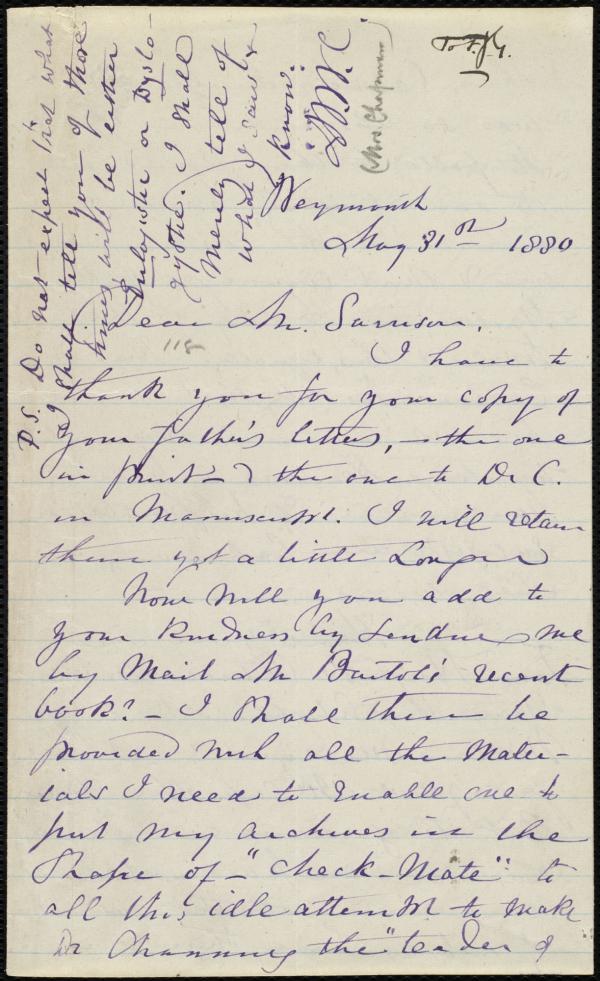 To F.J.G.
Weymouth
May 31st 1880
Dear Mr. Garrison,
I have to
thank you for your copy of
your father's letters, – the one
in print – & the one to Dr C.
in Manuscript. I will retain
them yet a little longer
Now will you add to
your kindness by sending me
by Mail Mr Bartol's recent
book? – I shall then be
provided with all the mater-
ials I need to enable me to
put my archives in the
shape of – "check-mate" to
all this idle attempt to make
Dr Channing the "leader of
P.S. Do not expect that what
I shall tell you of those
times will be either
Eulogistic or Dyslo-
gystic. I shall
merely tell of
what I saw &
know.
M.W.C.
(Mrs. Chapman)